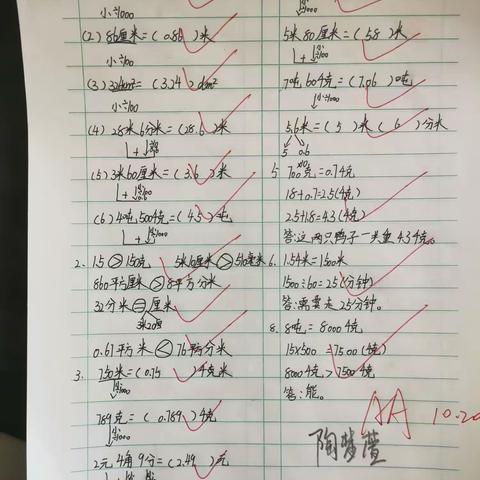 小÷1000
(2) 86厘米=(0.86)米
小÷100
(3) 324cm²=(3.24)dm²
小÷100
(4) 28米6分米=(28.6)米
(5) 3米60厘米=(3.6)米
(6) 4吨500千克=(4.5)吨
2. 1.5 > 150克 5米10厘米 > 510毫米
860平方厘米 > 8平方分米
32分米 = 厘米
3米20厘
0.61平方米 < 76平方分米
3. 750米=(0.75)千米
789克=(0.789)千克
2元4角9分=(2.49)元
5米80厘米=(5.8)米
7吨60千克=(7.06)吨
5.6米=(5)米(6)分米
5 0.6
5. 700克=0.7千克
1.8+0.7=2.5(千克)
2.5+1.8=4.3(千克)
答:这两只鸭子一共重4.3千克。
6. 1.5千米=1500米
1500÷60=25(分钟)
答:需要走25分钟。
8. 8吨=8000千克
15×500=7500(千克)
8000千克>7500千克
答:能。
AA 10.20
陶梦萱